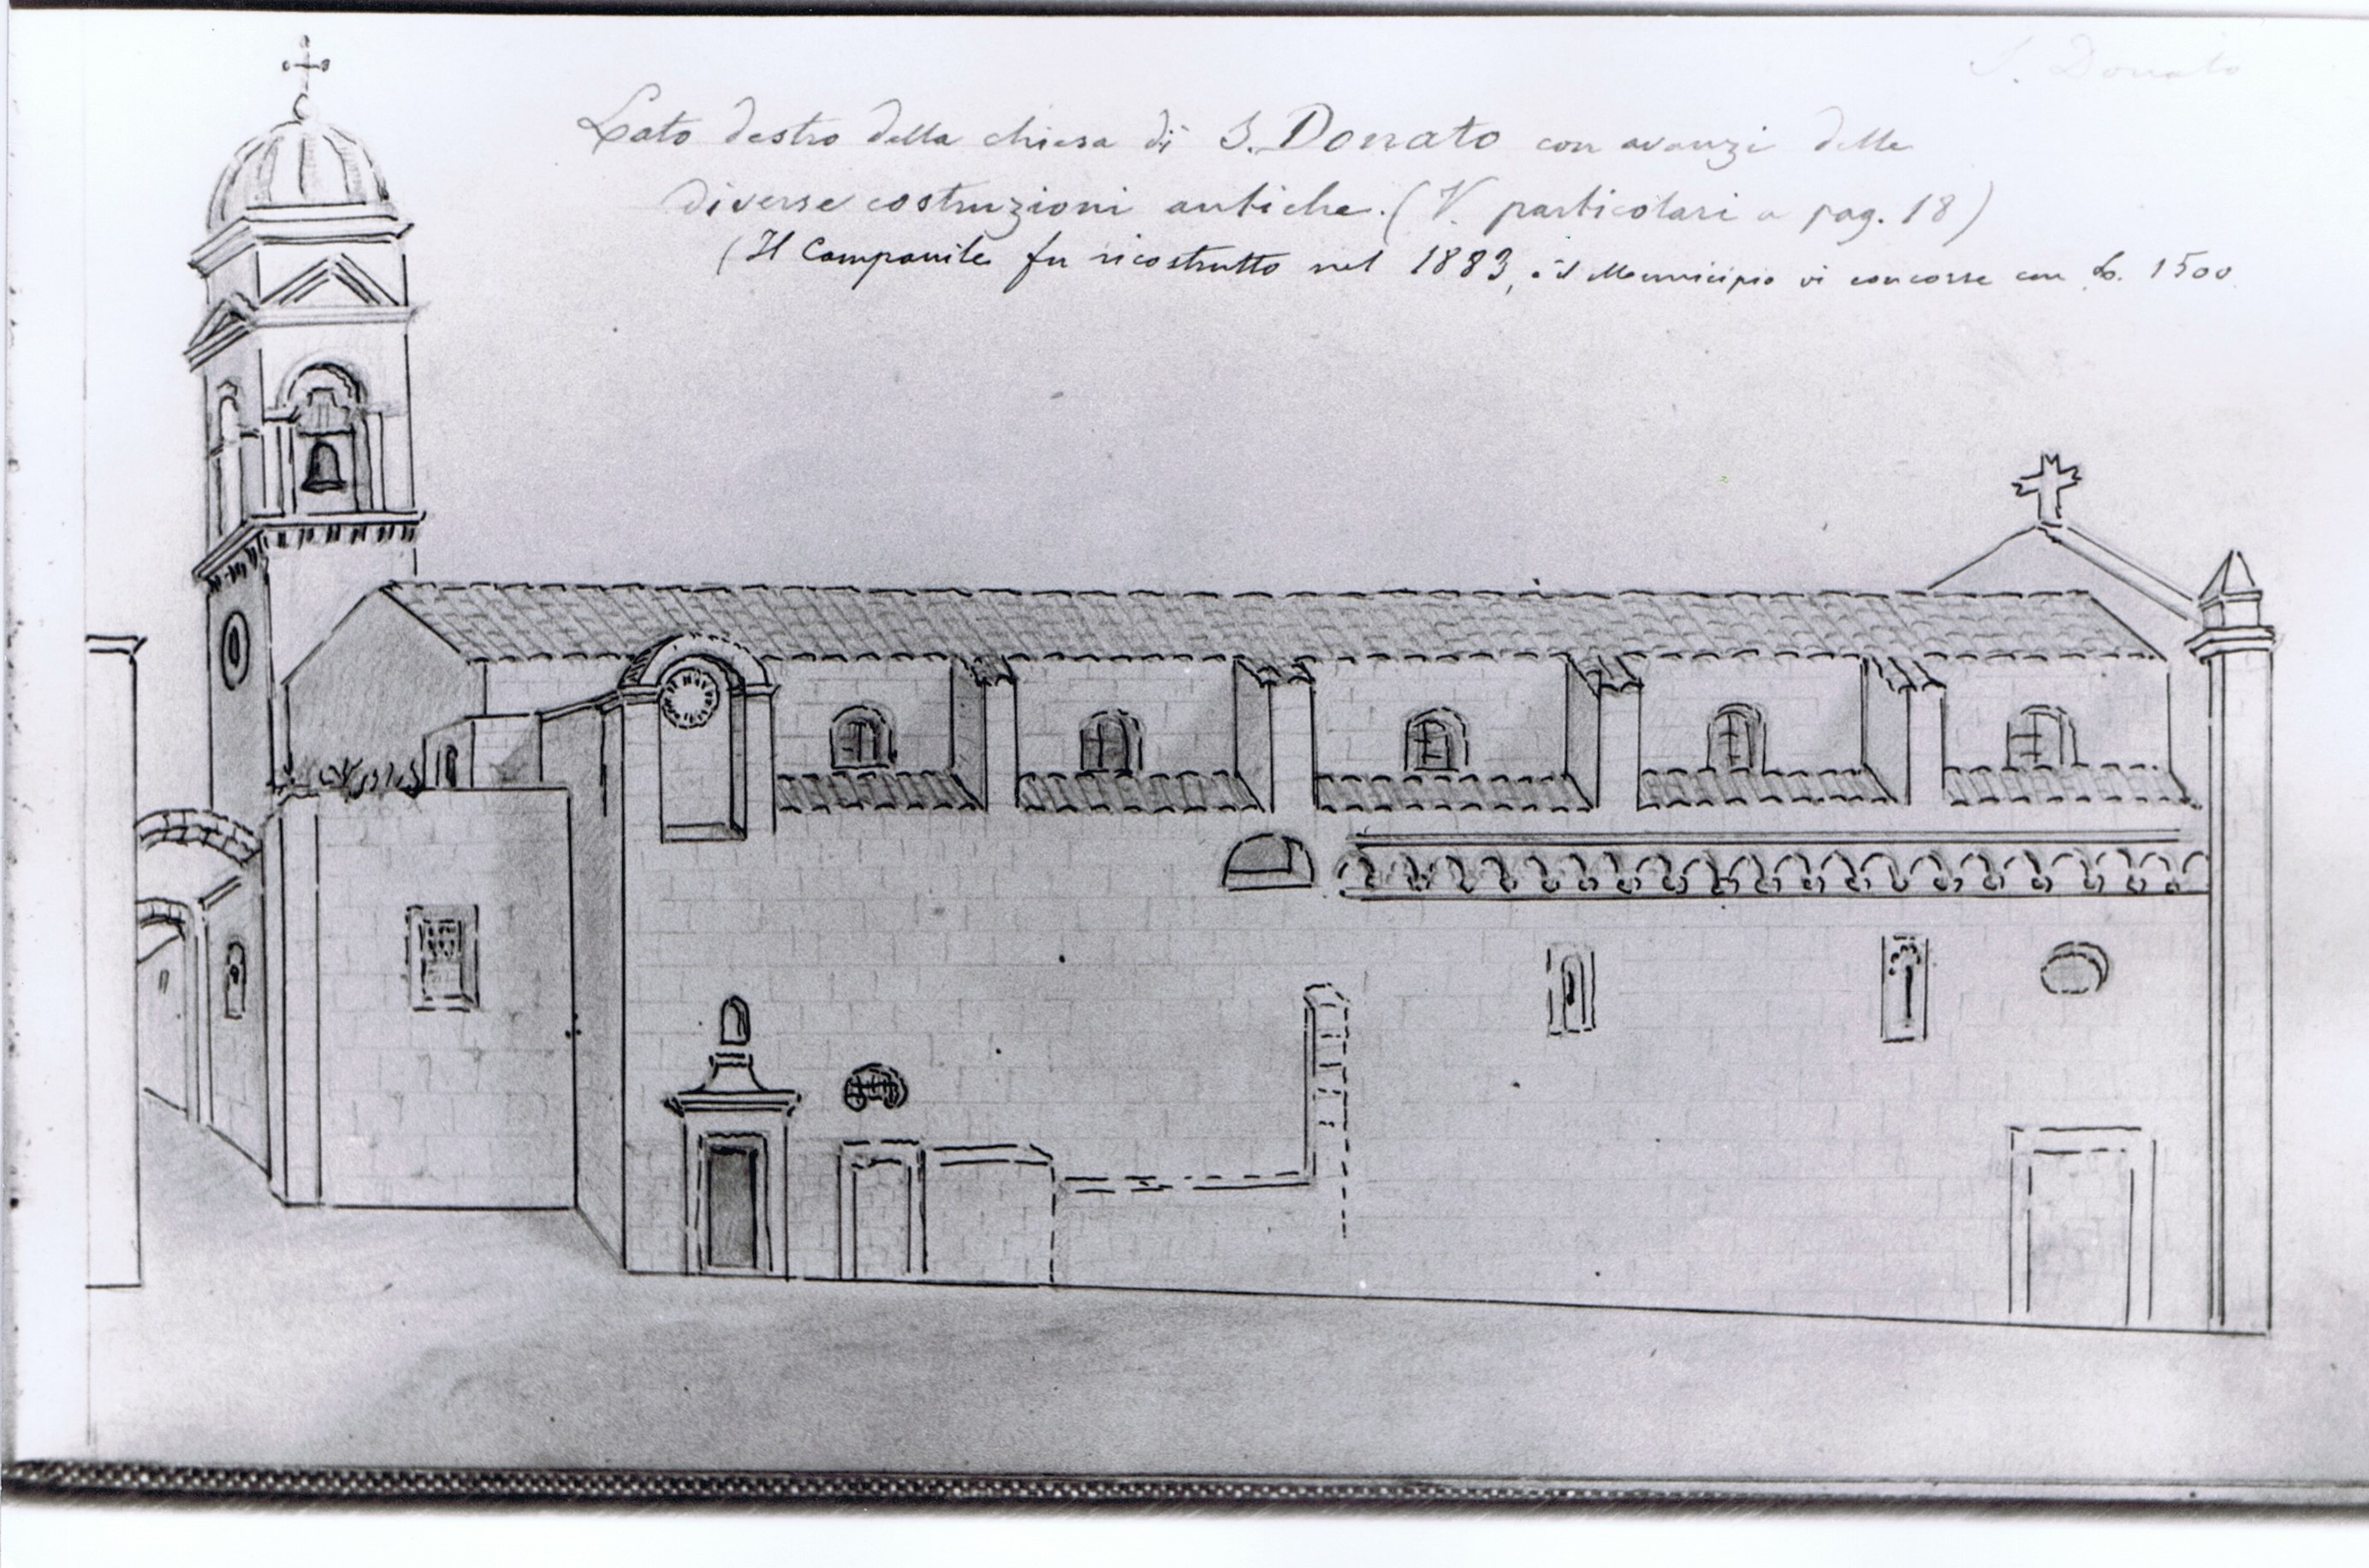 S. Donato
Lato destro della chiesa di S. Donato con avanzi delle
diverse costruzioni antiche. (V. particolari a pag. 18)
(Il Campanile fu ricostrutto nel 1883, e il Municipio vi concorse con L. 1500